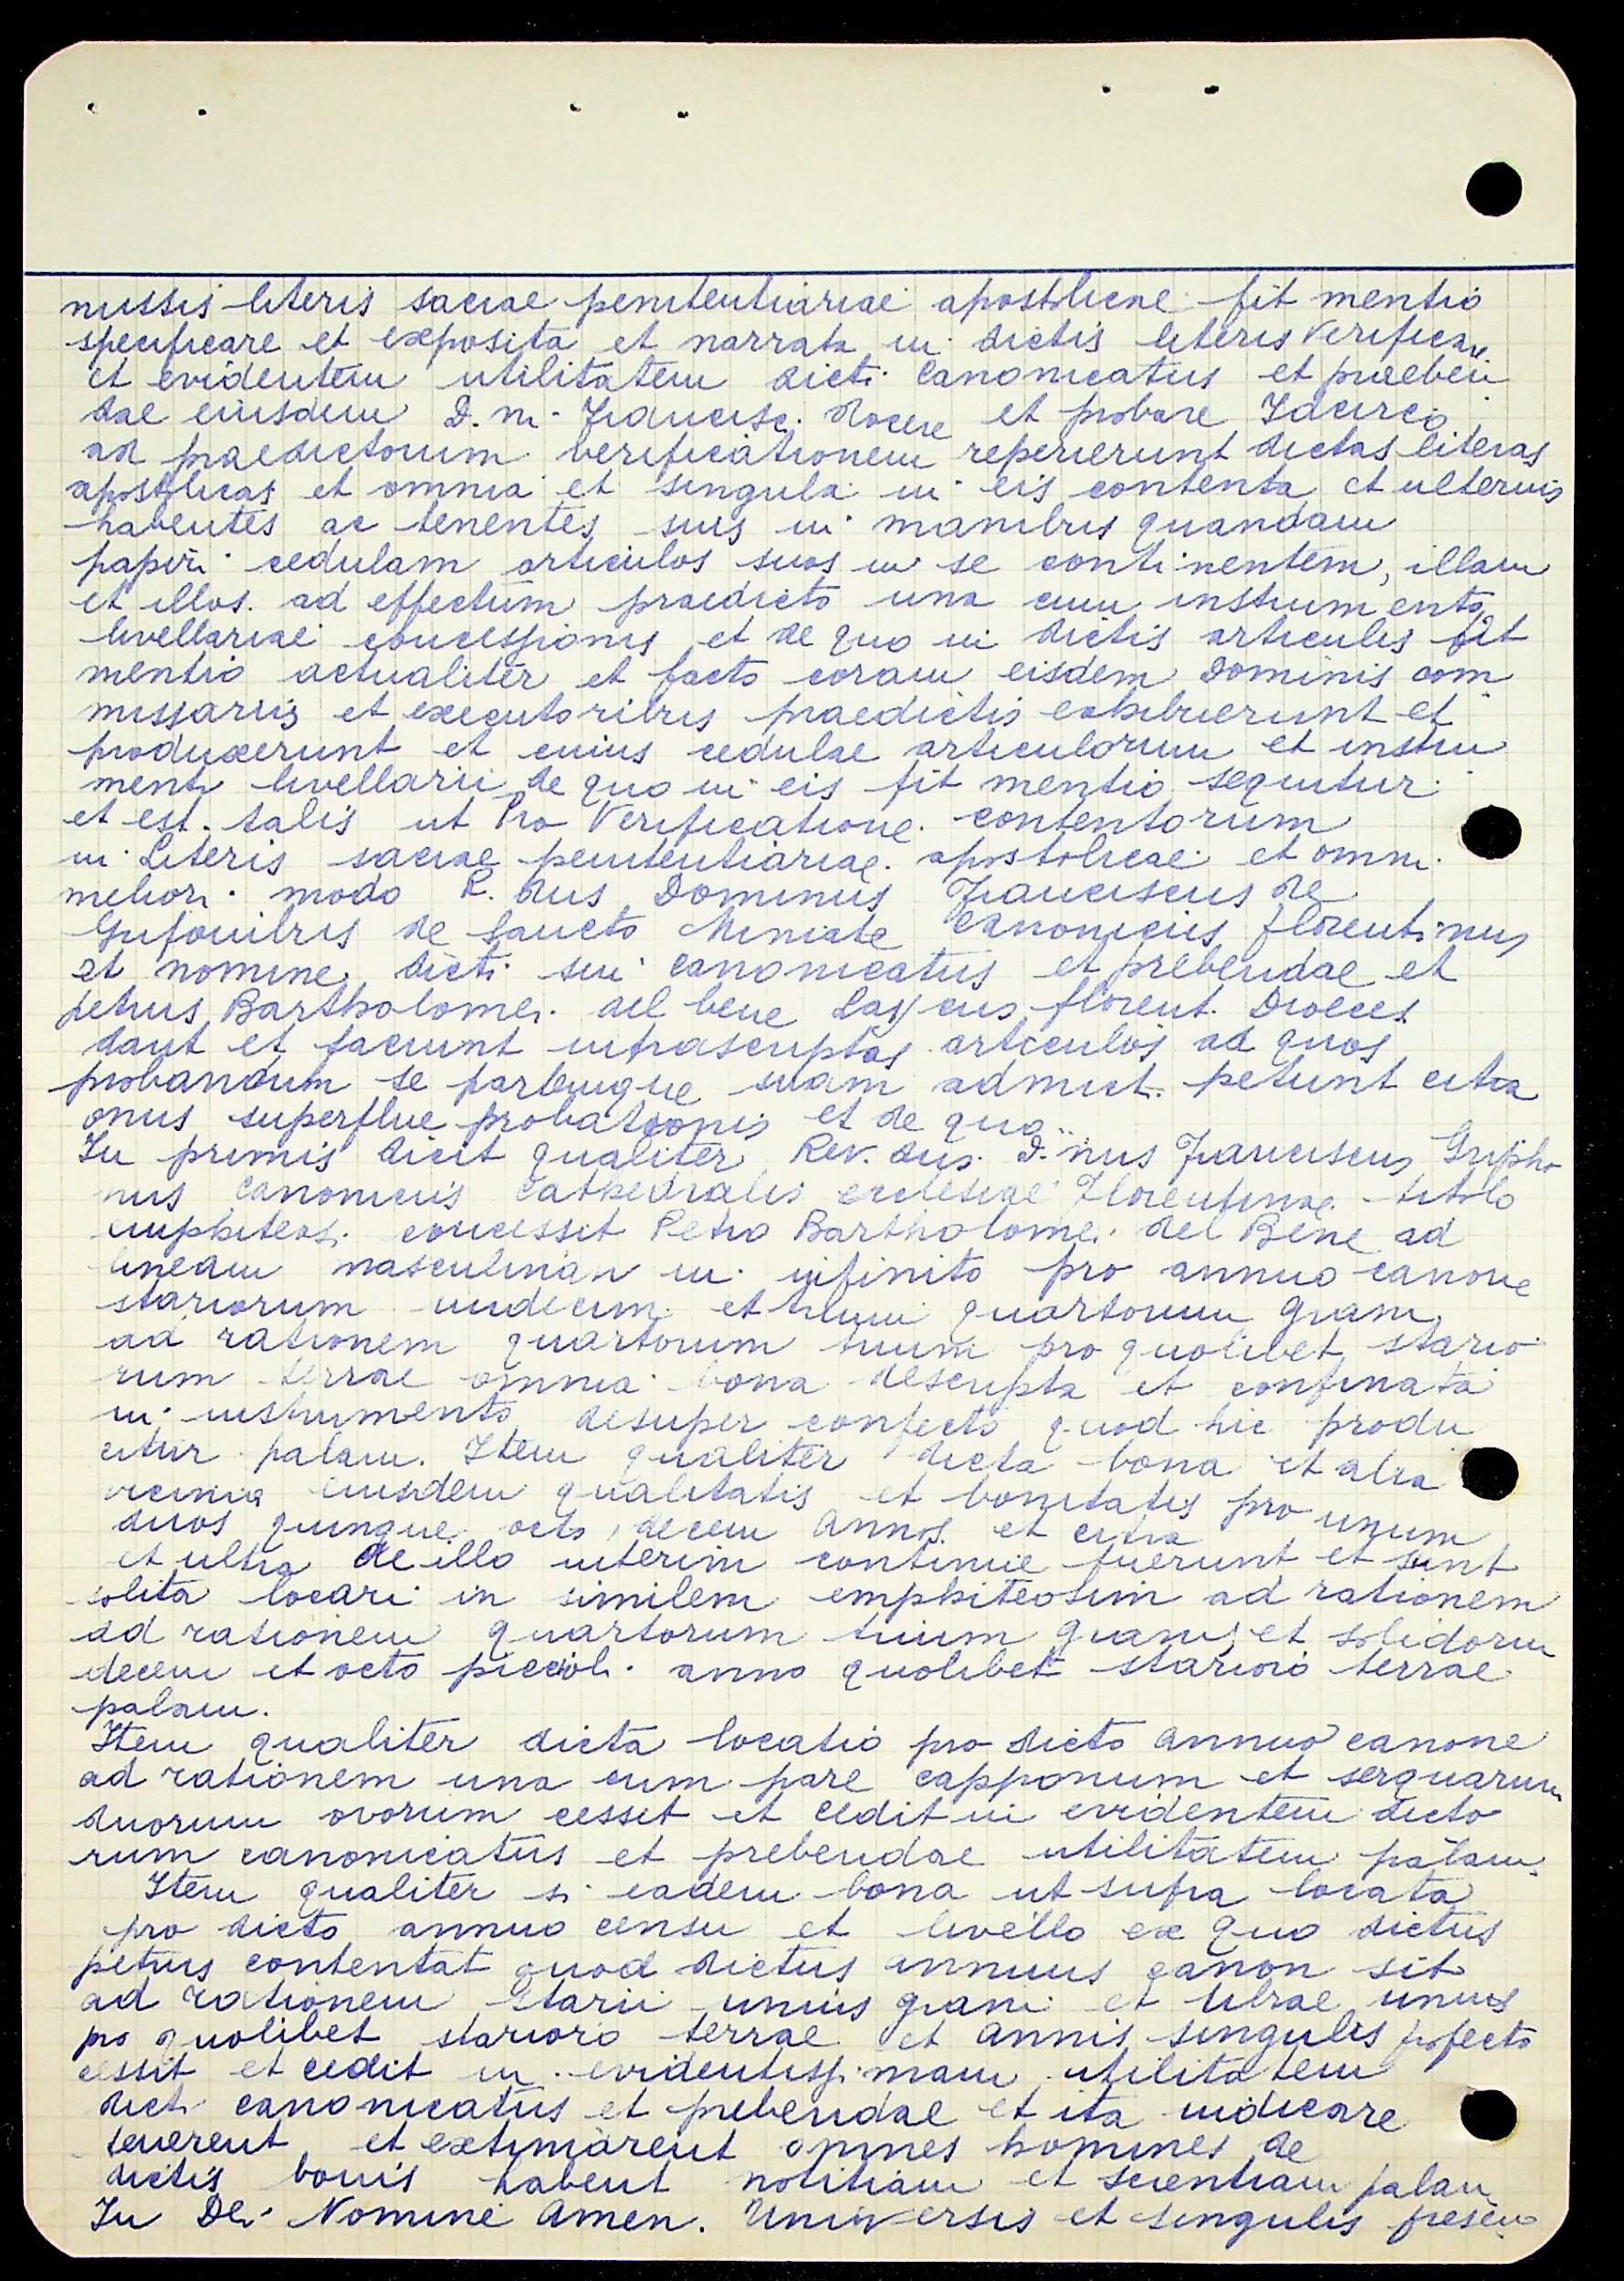 missis literis sacrae penitentiariae apostolicae fit mentio
specificare et exposita et narrata in dictis literis verificare
et evidentem utilitatem dicti canonicatus et praeben
dae eiusdem D. ni Francisc. docere et probare Idcirco
ad praedictorum verificationem reperierunt dictas literas
apostolicas et omnia et singula in eis contenta et ulterius
habentes ac tenentes suis in manibus quandam
papiri cedulam articulos suos in se continentem, illam
et illos ad effectum praedicto una cum instrumento
livellariae concessionis et de quo in dictis articulis fit
mentio actualiter et facto coram eisdem Dominis com
missariis et executoribus praedictis exhibuerunt et
produxerunt et cuius cedulae articulorum et instru
menti livellarii de quo in eis fit mentio sequitur
et est talis ut Pro Verificatione contentorum
in Literis sacrae penitentiariae apostolicae et omni
meliori modo R. dus Dominus Franciscus de
Grifonibus de Sancto Miniate Canonicus florentinus
et nomine dicti sui canonicatus et prebendae et
petrus Bartholomei del bene laycus florent. Dioeces
dant et faciunt infrascriptos articulos ad quos
probandum se partemque suam admict. petunt citra
onus superflue probationis et de quo..
In primis dicit qualiter Rev. dus. D. nus Franciscus Gripho
nus canonicus cathedralis ecclesiae Florentinae titolo
emphiteosi concessit Petro Bartholomei del Bene ad
lineam masculinan in infinito pro annuo canone
stariorum undecim et trium quartorum grani
ad rationem quartorum trium pro quolibet stario
rum terrae omnia bona descripta et confinata
in instrumento desuper confecto quod hic produ
citur palam. Item qualiter dicta bona et alia
vicinia eiusdem qualitatis et bonitatis pro unum
duos quinque octo, decem annos et citra
et ultra de illo interim continue fuerunt et sunt
solita locari in similem emphiteosim ad rationem
ad rationem quartorum trium grani et solidorum
decem et octo piccioli anno quolibet starioro terrae
palam.
Item qualiter dicta locatio pro dicto annuo canone
ad rationem una cum pare capponum et serquarum
duorum ovorum cesset et cedit in evidentem dicto
rum canonicatus et prebendae utilitatem palam.
Item qualiter si eadem bona ut supra locata
pro dicto annuo censu et livello ex quo dictus
petrus contentat quod dictus annuus canon sit
ad rationem starii unius grani et librae unius
pro quolibet starioro terrae et annis singulis profecto
cessit et cedit in evidentissimam utilitatem
dicti canonicatus et prebendae et ita iudicare
tenerent et extimarent omnes homines de
dictis bonis habent notitiam et scientiam palam
In Dei Nomine Amen. Universis et singulis presen